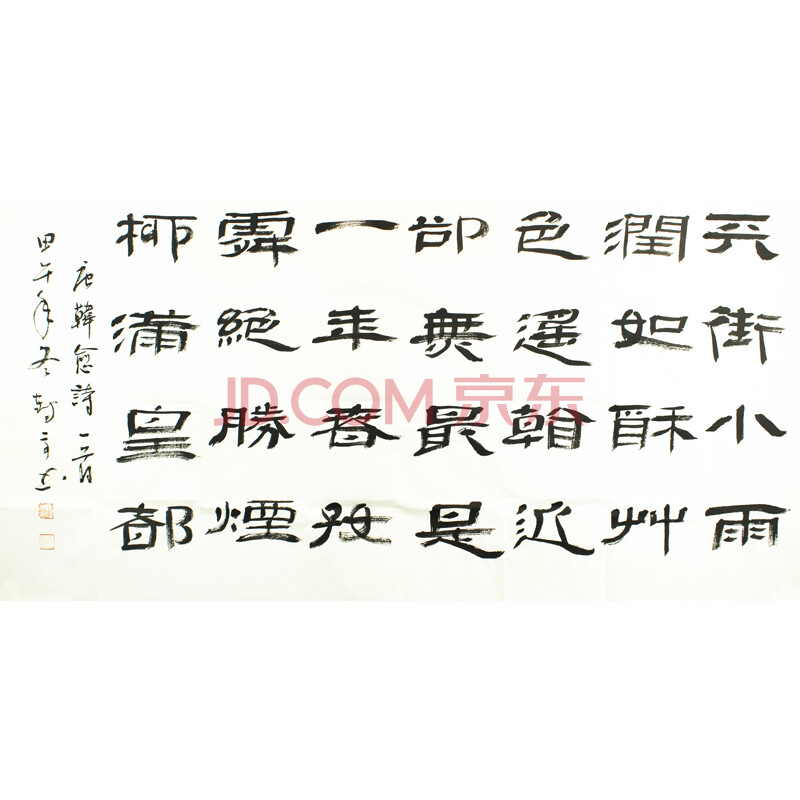 天街小雨
潤如酥艸
色遥看近
卻無最是
一年春好
處絕勝煙
柳滿皇都
唐韓愈詩一首
甲午年冬
JD.COM 京东